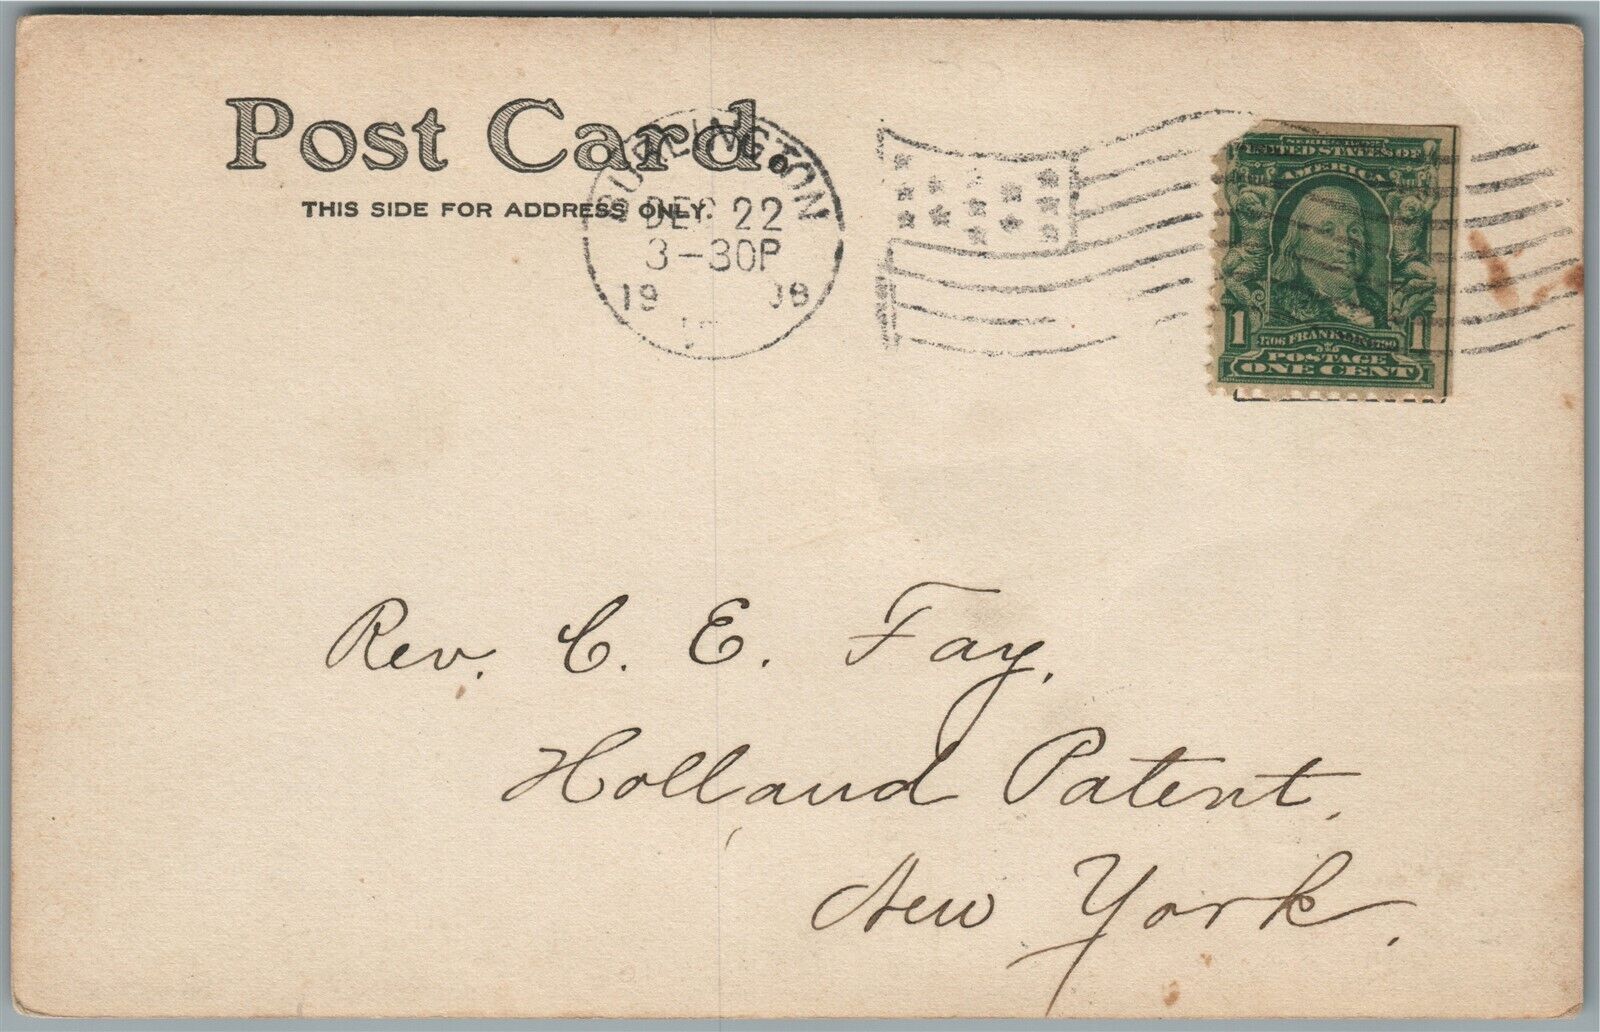 Post Card.
THIS SIDE FOR ADDRESS ONLY.
BURLINGTON
DEC 22
3-30P
19 08
SERIES 1902
UNITED STATES OF
AMERICA
1 1
1706 FRANKLIN 1790
POSTAGE
ONE CENT
Rev. C. E. Fay,
Holland Patent,
New York.